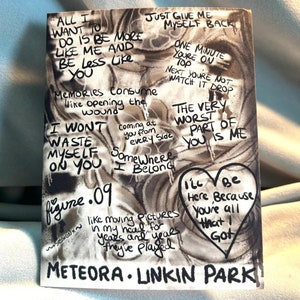 ALL I
WANT TO
DO IS BE MORE
LIKE ME AND
BE LESS LIKE
YOU
JUST GIVE ME
MYSELF BACK
ONE MINUTE
YOU'RE ON
TOP
NEXT YOU'RE NOT
WATCH IT DROP
MEMORIES CONSUME
like opening the
wound
THE VERY
WORST
PART OF
YOU IS ME
coming at
you from
every side
I WONT
WASTE
MYSELF
ON YOU
Somewhere
I Belong
figure.09
I'll Be
Here Because
You're all
that I
Got
like moving pictures
in my head for
years and years
they've played
METEORA · LINKIN PARK